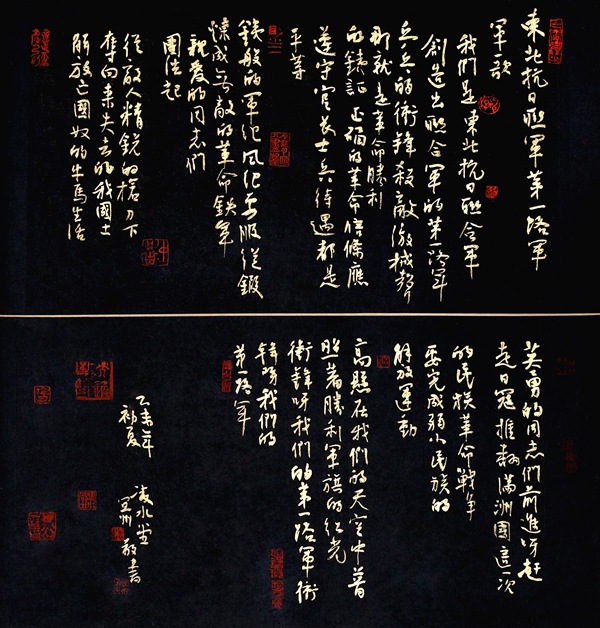 東北抗日联軍第一路軍
軍歌
我們是東北抗日联合軍
創造出聯合軍的第一路軍
乒乓的衝鋒殺敵繳械聲
那就是革命勝利
的鐵証 正确的革命信條應
遵守官長士兵待遇都是
平等
鐵般的軍紀風紀要服從鍛
煉成無敵的革命鉄軍
親愛的同志們
團結起
從敵人精銳的槍刀下
奪回來失去的我國土
解放亡國奴的牛馬生活
英勇的同志們前進呀赶
走日寇推翻滿洲國這一次
的民族革命戰争
要完成弱小民族的
解放運動
高懸在我們的天空中普
照著勝利軍旗的紅光
衝鋒呀我們的第一路軍衝
鋒呀我們的
第一路軍
乙未年
初夏
凌水堂
敬書